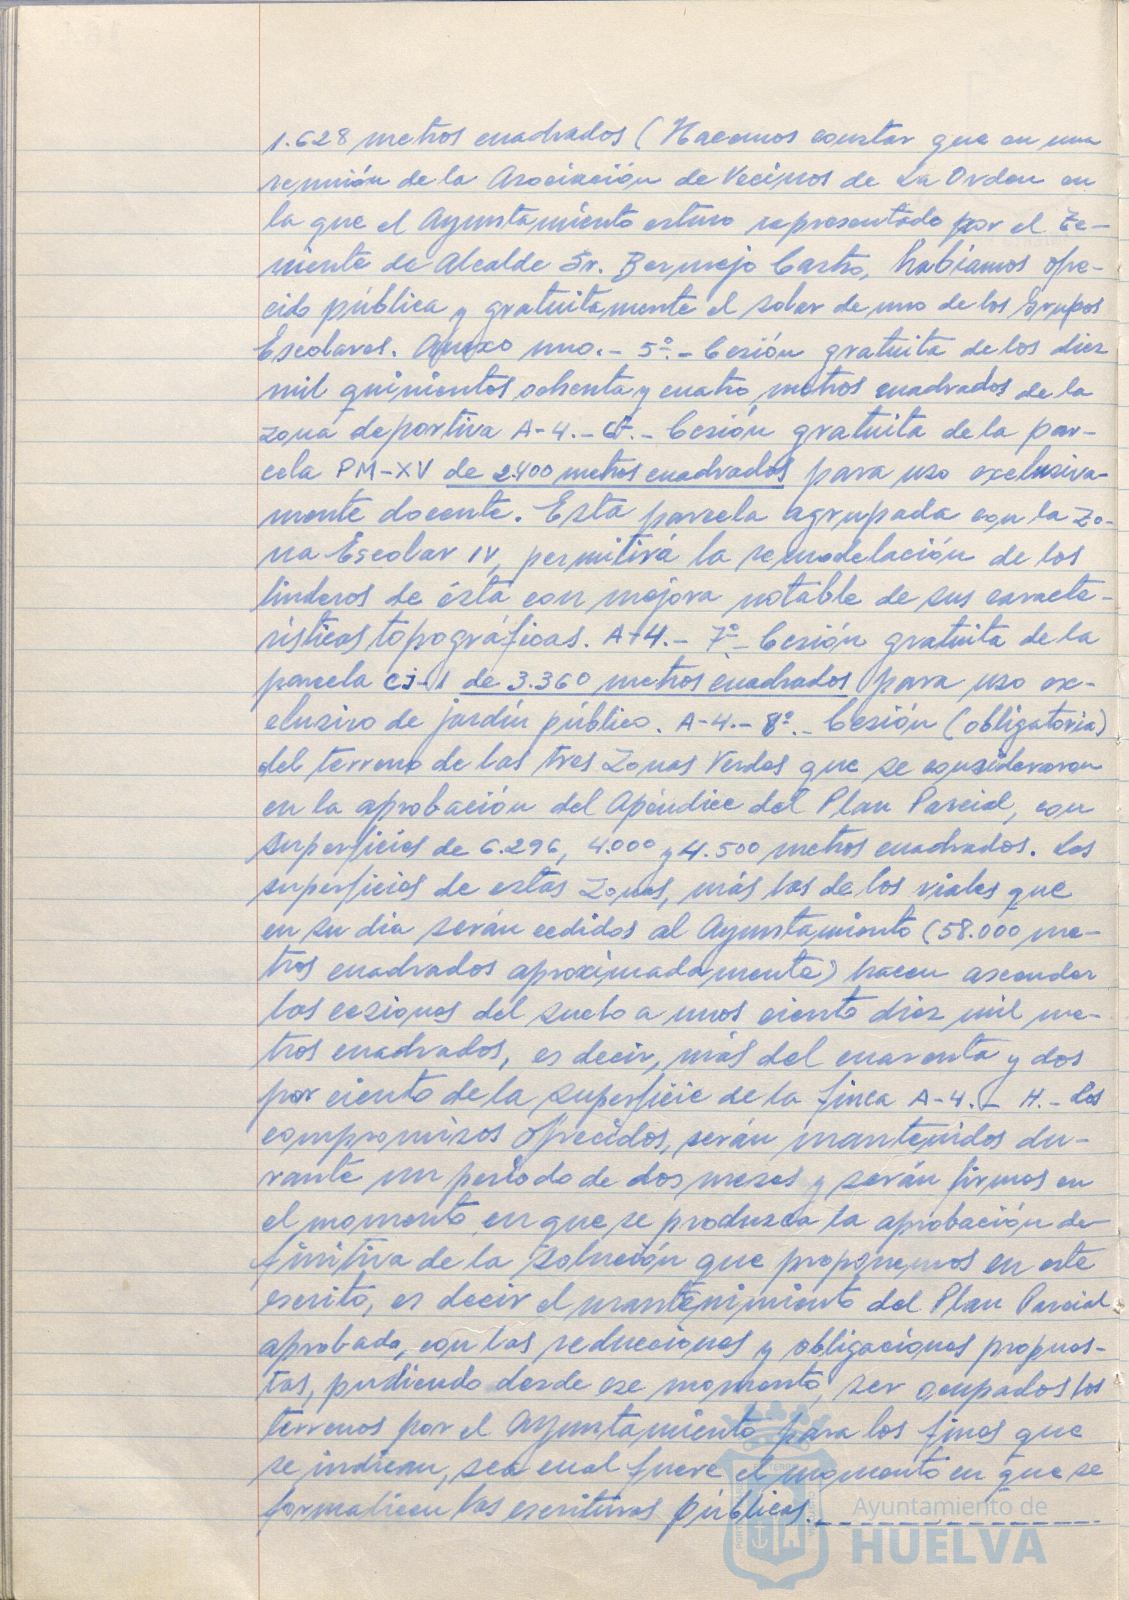 1.628 metros cuadrados (Hacemos constar que en una
reunión de la Asociación de Vecinos de La Orden en
la que el Ayuntamiento estuvo representado por el Te-
niente de Alcalde Sr. Bermejo Castro, habíamos ofre-
cido pública y gratuitamente el solar de uno de los Grupos
Escolares. Anexo uno.- 5º.- Cesión gratuita de los diez
mil quinientos ochenta y cuatro metros cuadrados de la
zona deportiva A-4.- 6º.- Cesión gratuita de la par-
cela PM-XV de 2.400 metros cuadrados para uso exclusiva-
mente docente. Esta parcela agrupada con la Zo-
na Escolar IV, permitirá la remodelación de los
linderos de ésta con mejora notable de sus caracte-
rísticas topográficas. A-4.- 7º- Cesión gratuita de la
parcela CJ-1 de 3.360 metros cuadrados para uso ex-
clusivo de jardín público. A-4.- 8º.- Cesión (obligatoria)
del terreno de las tres Zonas Verdes que se consideraron
en la aprobación del Apéndice del Plan Parcial, con
superficies de 6.296, 4.000 y 4.500 metros cuadrados. Las
superficies de estas Zonas, más las de los viales que
en su dia serán cedidos al Ayuntamiento (58.000 me-
tros cuadrados aproximadamente) hacen ascender
las cesiones del suelo a unos ciento diez mil me-
tros cuadrados, es decir, más del cuarenta y dos
por ciento de la superficie de la finca A-4.- H.- Los
compromisos ofrecidos, serán mantenidos du-
rante un período de dos meses y serán firmes en
el momento en que se produzca la aprobación de-
finitiva de la solución que proponemos en este
escrito, es decir el mantenimiento del Plan Parcial
aprobado, con las reducciones y obligaciones propues-
tas, pudiendo desde ese momento, ser ocupados los
terrenos por el Ayuntamiento para los fines que
se indican, sea cual fuere el momento en que se
formalicen las escrituras públicas.
Ayuntamiento de
HUELVA